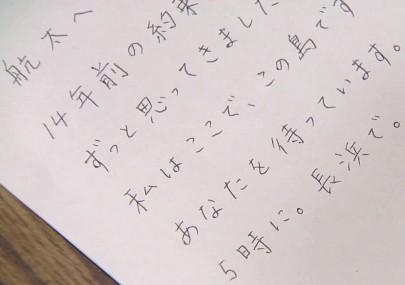 航太へ
14年前の約束
ずっと思ってきました
私はここで、この島です
あなたを待っています。
5時に。長浜で。